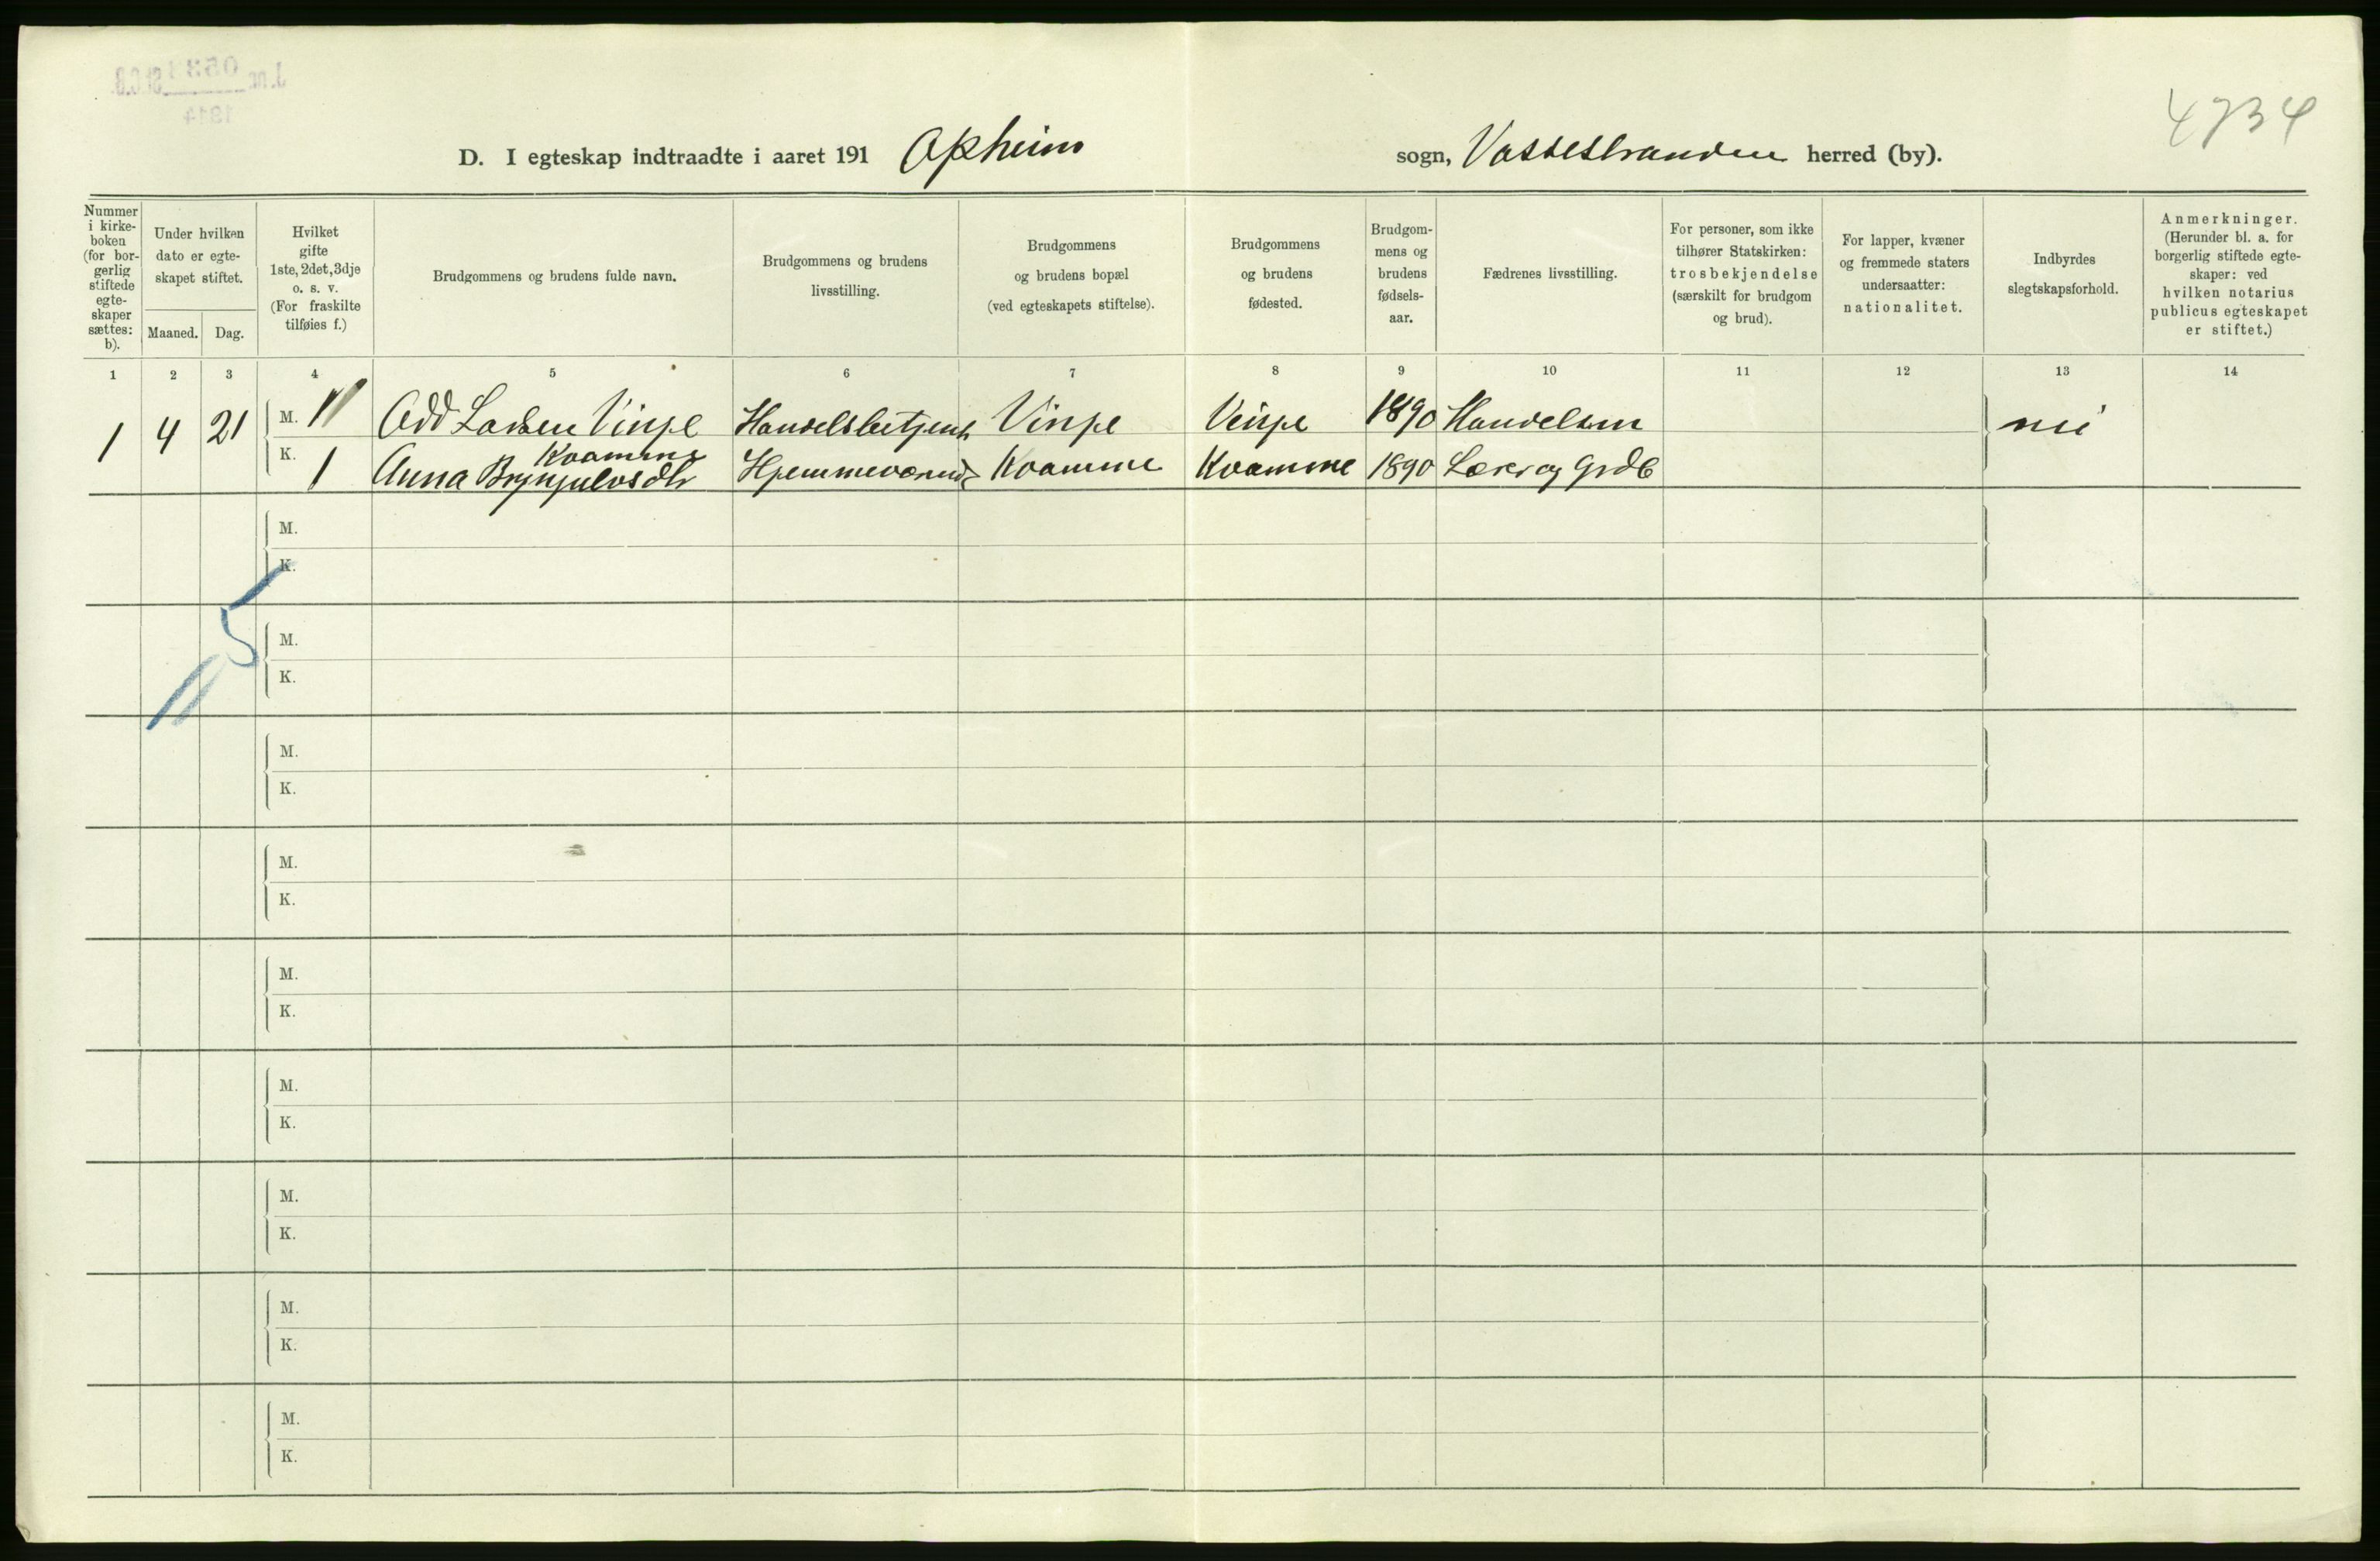 4734
D. I egteskap indtraadte i aaret 191 Opheim sogn, Vossestranden herred (by).
Nummer i kirke-boken (for bor-gerlig stiftede egte-skaper sættes: b).
Under hvilken dato er egte-skapet stiftet.
Maaned. Dag.
Hvilket gifte 1ste, 2det, 3dje o. s. v. (For fraskilte tilføies f.)
Brudgommens og brudens fulde navn.
Brudgommens og brudens livsstilling.
Brudgommens og brudens bopæl (ved egteskapets stiftelse).
Brudgommens og brudens fødested.
Brudgom-mens og brudens fødsels-aar.
Fædrenes livsstilling.
For personer, som ikke tilhører Statskirken: trosbekjendelse (særskilt for brudgom og brud).
For lapper, kvæner og fremmede staters undersaatter: nationalitet.
Indbyrdes slegtskapsforhold.
Anmerkninger. (Herunder bl. a. for borgerlig stiftede egte-skaper: ved hvilken notarius publicus egteskapet er stiftet.)
1 2 3 4 5 6 7 8 9 10 11 12 13 14
1 4 21 M. 1 Odd Larsen Vinje Handelsbetjent Vinje Vinje 1890 Handelsm nei
Kvamme
K. 1 Anna Brynjulvsdtr Hjemmeværende Kvamme Kvamme 1890 Lærer og Grdb
M.
K.
5
M.
K.
M.
K.
M.
K.
M.
K.
M.
K.
M.
K.
M.
K.
M.
K.